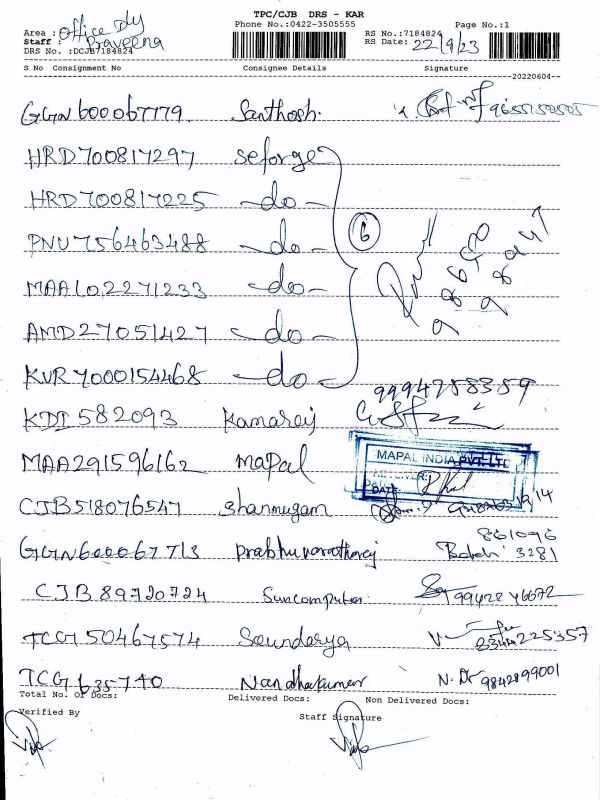 TPC/CJB DRS - KAR
Phone No.:0422-3505555
Page No.:1
Area : Office Dly
RS No.:7184824
Staff : Praveena
RS Date: 22/9/23
DRS No. :DCJB7184824
S No Consignment No Consignee Details Signature
20220604
GGN600067779 Santhosh. 9655150505
HRD700817297 Seforge
HRD700817225 -do-
PNU756463488 -do- 6
MAA102271233 -do-
AMD27051427 -do-
KVR7000154468 -do-
9994758359
KDI582093 Kamaraj
MAA291596162 Mapal MAPAL INDIA PVT. LTD
DATE:
CJB518076547 Shanmugam
861096
GGN600067713 Prabhuvaratharaj 3281
CJB89720724 Suncomputer
TCG50467574 Soundarya 2344225357
TCG635740 Nandhakumar N. 9842899001
Total No. of Docs: Delivered Docs: Non Delivered Docs:
Verified By
Staff Signature